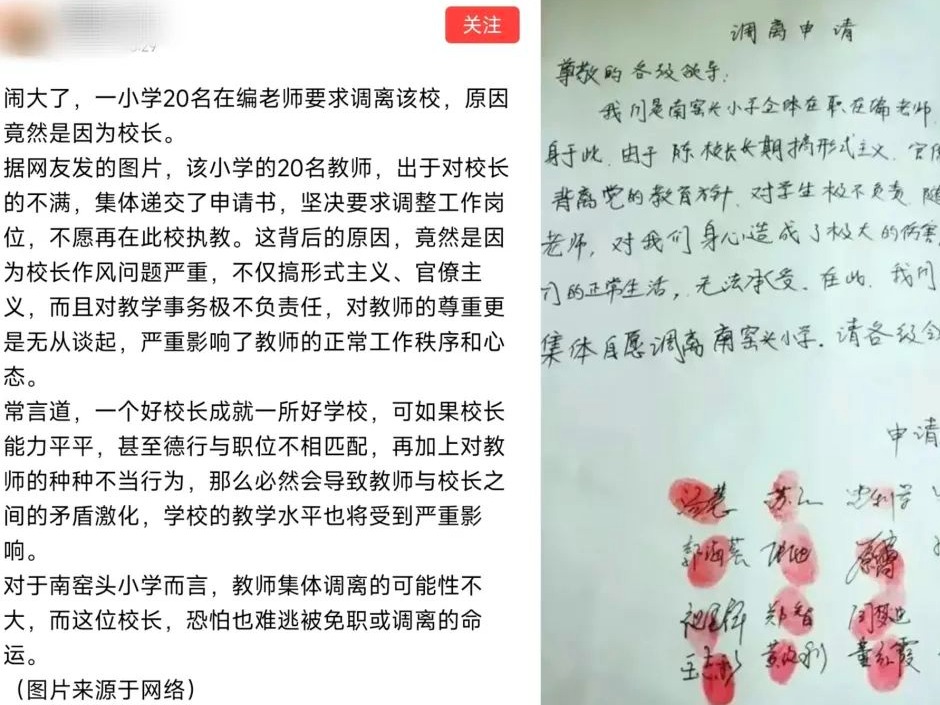 关注
闹大了，一小学20名在编老师要求调离该校，原因
竟然是因为校长。
据网友发的图片，该小学的20名教师，出于对校长
的不满，集体递交了申请书，坚决要求调整工作岗
位，不愿再在此校执教。这背后的原因，竟然是因
为校长作风问题严重，不仅搞形式主义、官僚主
义，而且对教学事务极不负责任，对教师的尊重更
是无从谈起，严重影响了教师的正常工作秩序和心
态。
常言道，一个好校长成就一所好学校，可如果校长
能力平平，甚至德行与职位不相匹配，再加上对教
师的种种不当行为，那么必然会导致教师与校长之
间的矛盾激化，学校的教学水平也将受到严重影
响。
对于南窑头小学而言，教师集体调离的可能性不
大，而这位校长，恐怕也难逃被免职或调离的命
运。
（图片来源于网络）
调离申请
尊敬的各级领导：
我们是南窑头小学全体在职在编老师
身于此，由于陈校长长期搞形式主义、官
背离党的教育方针，对学生极不负责，随
老师，对我们身心造成了极大的伤害
们的正常生活，无法承受。在此，我们
集体自愿调离南窑头小学。请各级领
申请
郭海芸
郑智
黄红霞